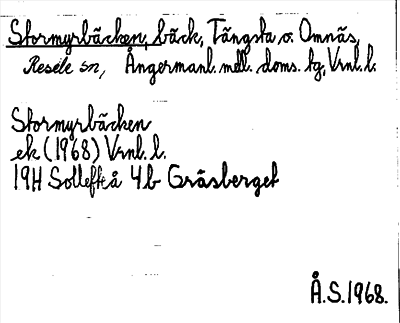 Stormyrbäcken, bäck, Tängsta o. Omnäs,
Resele sn, Ångermanl. mell. doms. tg, Vrnl. l.
Stormyrbäcken
ek (1968) Vrnl. l.
19H Sollefteå 4b Gråsberget
Å.S. 1968.